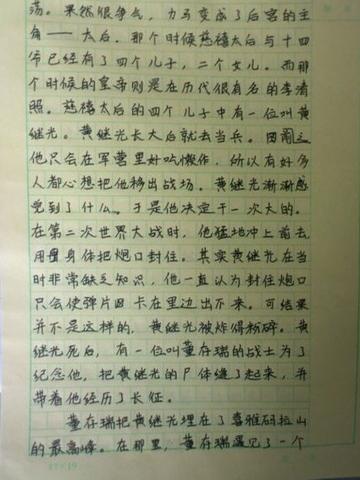 荡。果然很争气，力马变成了后宫的主
角——太后。那个时候慈禧太后与十四
爷已经有了四个儿子，二个女儿。而那
个时候的皇帝则是在历代很有名的李清
照。慈禧太后的四个儿子中有一位叫黄
继光。黄继光长大后就去当兵。因而
他只会在军营里好吃懒作，所以有好多
人都心想把他移出战场。黄继光渐渐感
觉到了什么。于是他决定干一次大的。
在第二次世界大战时，他猛地冲上前去
用量身体把炮口封住。其实黄继光在当
时非常缺乏知识，他一直认为封住炮口
只会使弹片因卡在里边出不来。可结果
并不是这样的，黄继光被炸得粉碎。黄
继光死后，有一位叫董存瑞的战士为了
纪念他，把黄继光的尸体缝了起来，并
带着他经历了长征。
董存瑞把黄继光埋在了喜雅码拉山
的最高峰。在那里，董存瑞遇见了一个